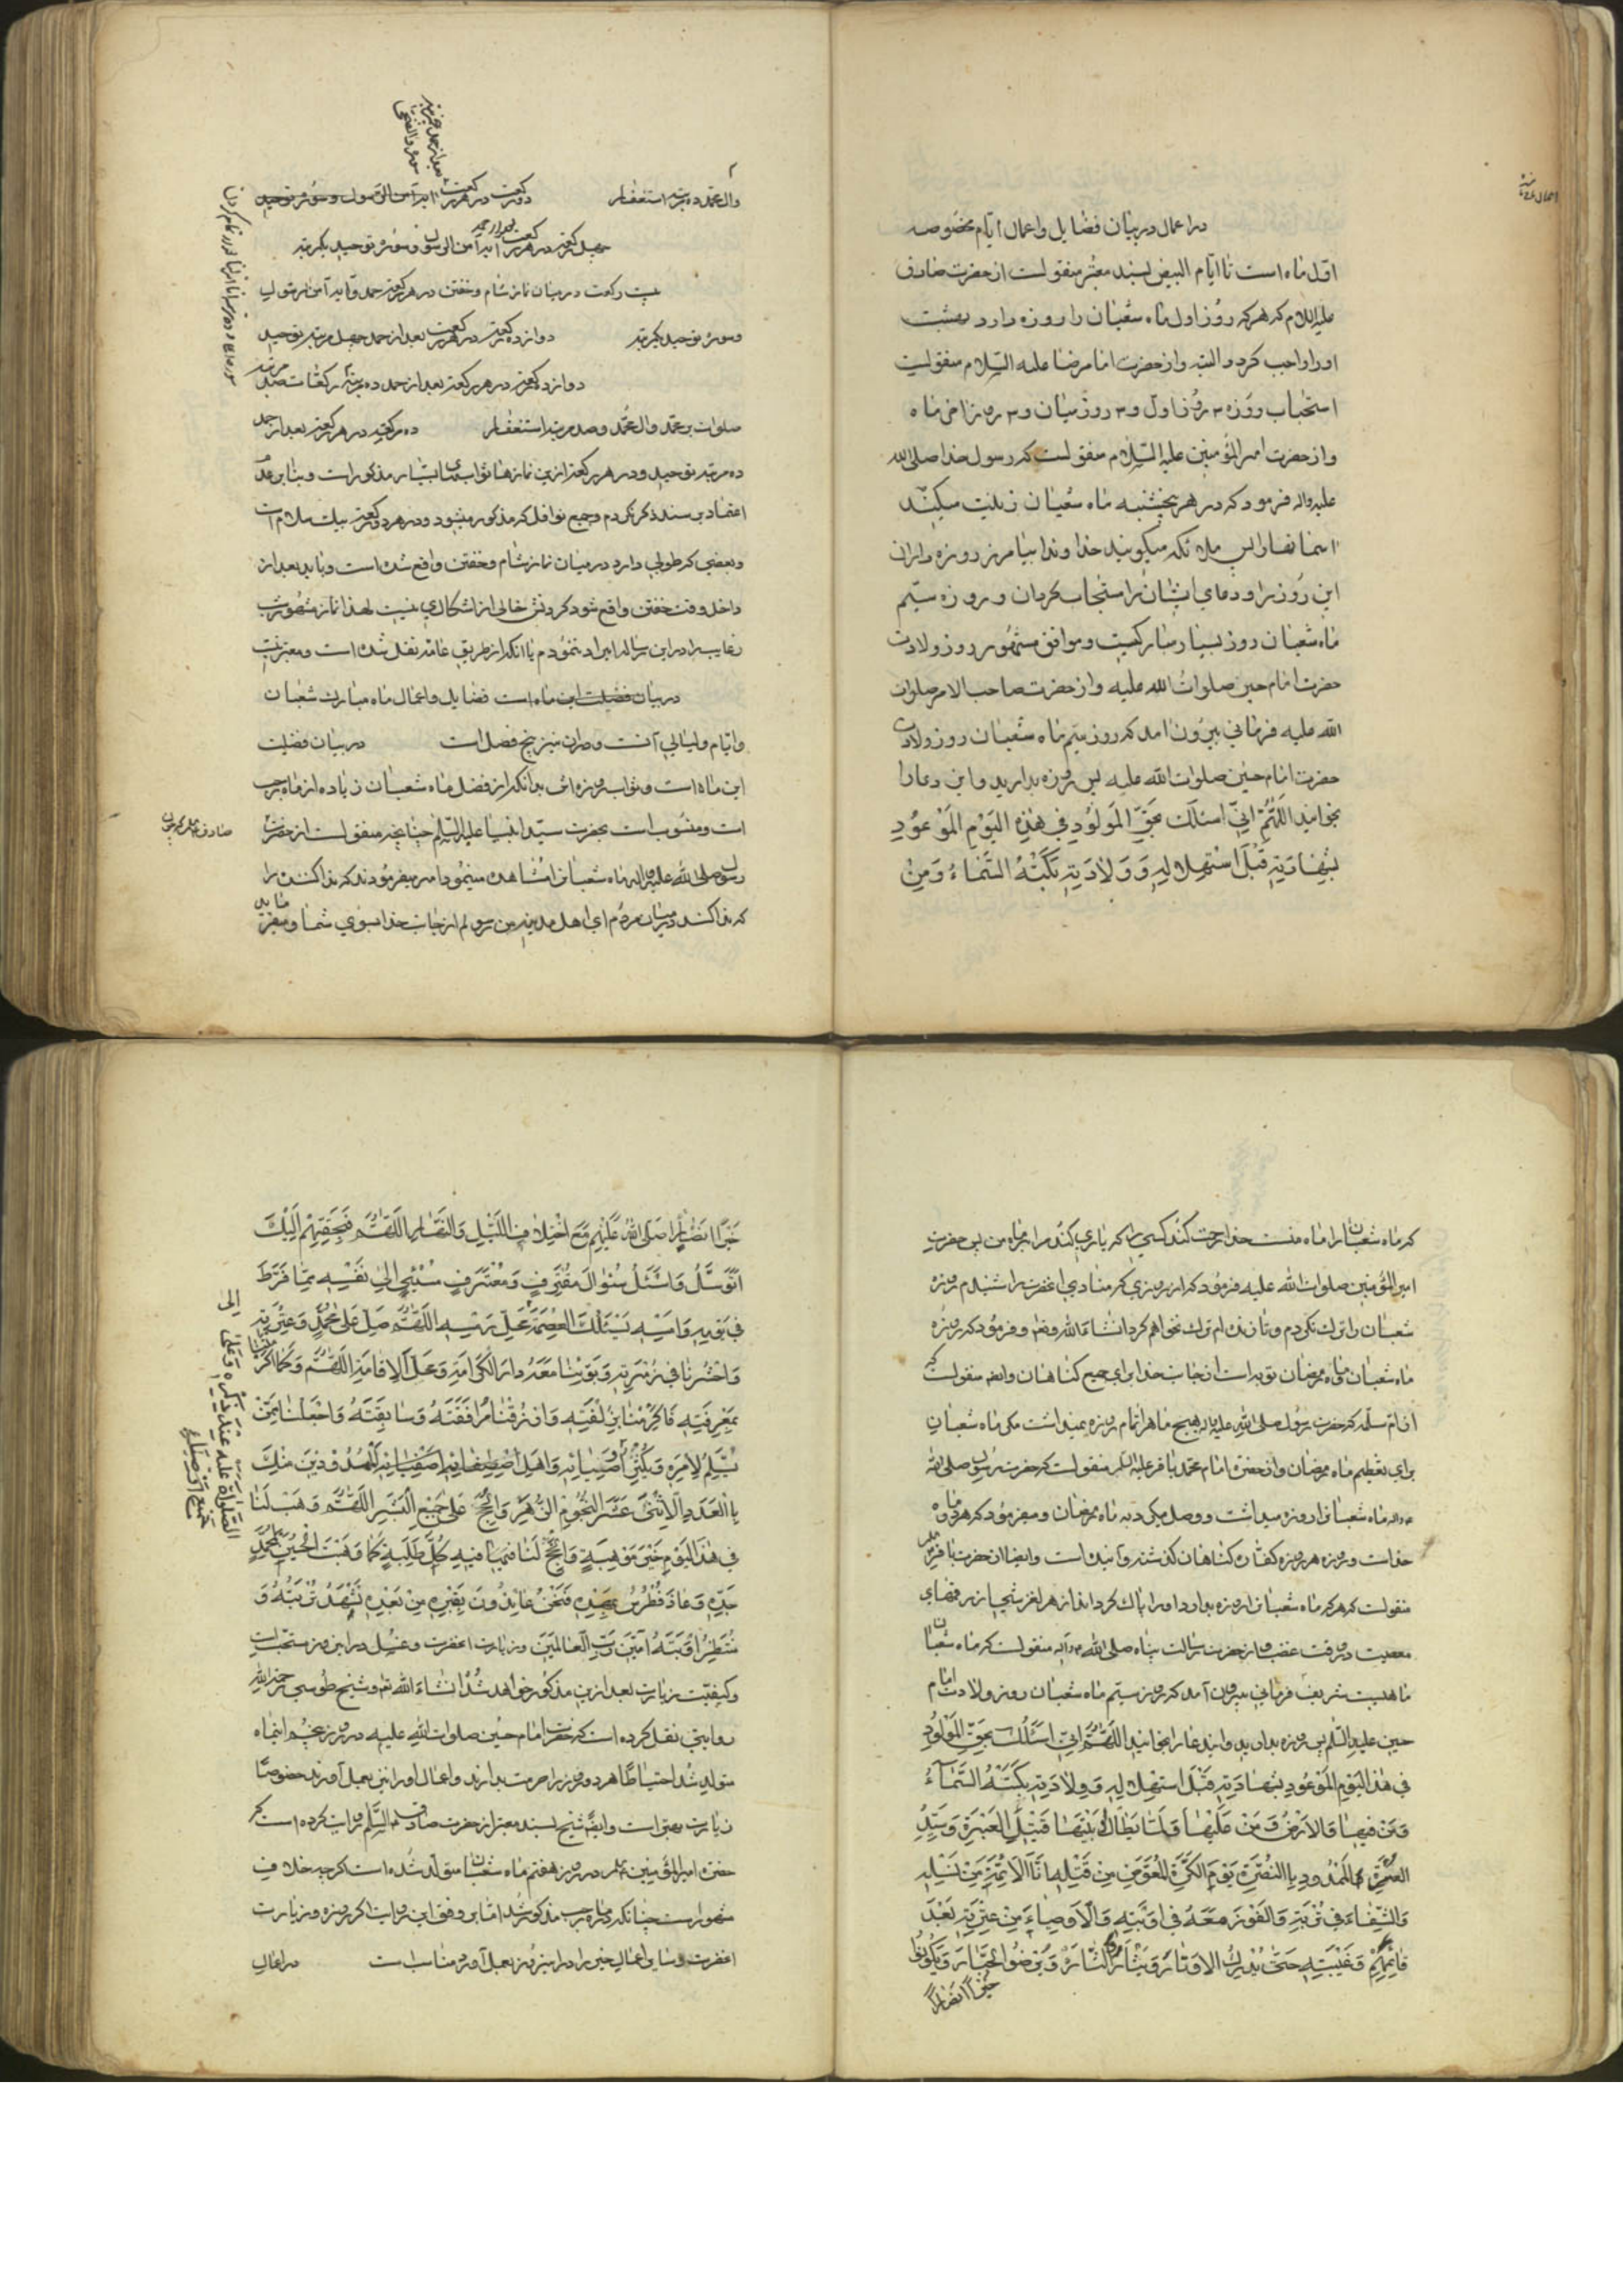 اعمال
در اعمال در بیان فضایل و اعمال ایام مخصوصه
اول ماه است تا ایام البیض بسند معتبر منقولست از حضرت صادق
علیه السلام که هر که روز اول ماه شعبان را روزه دارد بهشت
او را واجب کرد و البته و از حضرت امام رضا علیه السلام منقولست
استحباب روزه ۳ روز اول و ۳ روز میان و ۳ روز اخر ماه
و از حضرت امیر المؤمنین علیه السلام منقولست که رسول خدا صلی الله
علیه واله فرمود که در هر پنجشنبه ماه شعبان زینت میکنند
اسمانها را پس ملائکه میکویند خداوندا بیامرز روزه داران
این روز را و دعای ایشان را مستجاب کردان و روزه سیّم
ماه شعبان روز بسیار مبارکیست و موافق مشهور روز ولادت
حضرت امام حسین صلوات الله علیه و از حضرت صاحب الامر صلوات
الله علیه فرمانی بیرون امد که روز سیم ماه شعبان روز ولادت
حضرت امام حسین صلوات الله علیه پس روزه بدارید و این دعا را
بخوانید اَللّهُمَّ اِنّی اَسئَلُکَ بِحَقِّ المَولُودِ فی هٰذِهِ الیَومِ المَوعُودِ
بِشَهادَتِهِ قَبلَ استِهلالِهِ وَ وِلادَتِهِ بَکَتهُ السَّماءُ وَ مَن
وال محمد ده مرتبه استغفار دو رکعت در هر رکعت امن الرسول و سوره توحید
چهل رکعت در هر رکعت آیه آمن الرسول و سوره توحید یکمرتبه
بعد از حمد
بیست رکعت در میان نماز شام و خفتن در هر رکعت حمد و آیه آمن الرسول
و سوره توحید یکمرتبه دوازده رکعت در هر رکعت بعد از حمد چهل مرتبه توحید
دوازده رکعت در هر رکعت بعد از حمد ده مرتبه
صلوات بر محمد وال محمد و صد مرتبه استغفار ده رکعت در هر رکعت بعد از حمد
ده مرتبه توحید و در هر رکعت ازین نمازها ثوابهای بسیار مذکور است و بنابر عدم
اعتماد بر سند ذکر نکردم و جمیع نوافل که مذکور میشود در هر دو رکعت بیک سلام است
و بعضی که طولی دارد در میان نماز شام و خفتن واقع شده است و باید بعد از
داخل وقت خفتن واقع شود کردنش خالی از اشکالی نیست لهذا نماز مشهور
رغایب را در این رساله ایراد ننمودم با انکه از طریق عامه نقل شده است و معتبر نیست
در بیان فضیلت این ماه است فضایل و اعمال ماه مبارک شعبان
و ایام و لیالی آنست و در آن نیز پنج فصل است در بیان فضیلت
این ماه است و ثواب روزه اش بدانکه از فضل ماه شعبان زیاده از ماه رجب
است و منسوب است بحضرت سید انبیا علیه السلم چنانچه منقولست از حضرت
صادق
رسول صلی الله علیه واله ماه شعبان را مشاهده مینمود امر میفرمودند که ندا کننده را
که ندا کند در میان مردم ای اهل مدینه من رسولم از جانب خدا بسوی شما و میفرماید
که ماه شعبان را ماه منست خدا رحمت کند کسی را که یاری کند مرا بر ماه من پس حضرت
امیر المؤمنین صلوات الله علیه فرمود که از روزی که منادی انحضرت را شنیدم روزه
شعبان را ترک نکردم و تا زنده ام ترک نخواهم کرد انشاءالله و فرمود که روزه
ماه شعبان و ماه رمضان توبه است از جانب خدا برای جمیع کناهان و ایضا منقولست
از ام سلمه که حضرت رسول صلی الله علیه واله هیچ ماه را تمام روزه نمیداشت مکر ماه شعبان
برای تعظیم ماه رمضان و از حضرت امام محمد باقر علیه السلم منقولست که حضرت رسول صلی الله
علیه واله ماه شعبان را روزه میداشت و وصل میکرد به ماه رمضان و میفرمود که هر دو ماه
خداست و روزه هر دو کفاره کناهان کذشته و آینده است و ایضا از حضرت باقر
منقولست که هر که ماه شعبان را روزه بدارد او را پاک کرداند از هر لغزش
معصیت در وقت غضب و از حضرت رسالت پناه صلی الله علیه واله منقولست که ماه شعبان
ماهیست شریف فرمانی بیرون آمد که روز سیم ماه شعبان روز ولادت امام
حسین علیه السلم پس روزه بدارید و اینه دعا را بخوانید اَللّهُمَّ اِنّی اَسئَلُکَ بِحَقِّ المَولُودِ
فی هٰذَا الیَومِ المَوعُودِ بِشَهادَتِهِ قَبلَ استِهلالِهِ وَ وِلادَتِهِ بَکَتهُ السَّمآءُ
وَ مَن فیها وَ الاَرضُ وَ مَن عَلَیها وَ لَمّا یَطَأ لابَتَیها قَتیلِ العَبرَةِ وَ سَیِّدِ
الاُسرَةِ المَمدُودِ بِالنُّصرَةِ یَومَ الکَرَّةِ المُعَوَّضِ مِن قَتلِهِ اَنَّ الاَئِمَّةَ مِن نَسلِهِ
وَ الشِّفاءَ فی تُربَتِهِ وَ الفَوزَ مَعَهُ فی اَوبَتِهِ وَ الاَوصِیاءَ مِن عِترَتِهِ بَعدَ
قائِمِهِم وَ غَیبَتِهِ حَتّی یُدرِکُوا الاَوتارَ وَ یَثأَرُوا الثّارَ وَ یُرضُوا الجَبّارَ وَ یَکُونُوا
خَیرَ اَنصارٍ
خَیرَ اَنصارٍ صَلَّی اللهُ عَلَیهِم مَعَ اختِلافِ اللَّیلِ وَ النَّهارِ اَللّهُمَّ فَبِحَقِّهِم اِلَیکَ
اَتَوَسَّلُ وَ اَسئَلُ سُئوالَ مُقتَرِفٍ وَ مُعتَرِفٍ مُسیءٍ اِلی نَفسِهِ مِمّا فَرَّطَ
فی یَومِهِ وَ اَمسِهِ یَسئَلُکَ العِصمَةَ اِلی مَحَلِّ رَمسِهِ اَللّهُمَّ صَلِّ عَلی مُحَمَّدٍ وَ عِترَتِهِ
وَ احشُرنا فی زُمرَتِهِ وَ بَوِّئنا مَعَهُ دارَ الکَرامَةِ وَ مَحَلَّ الاِقامَةِ اَللّهُمَّ وَ کَما اَکرَمتَنا
بِمَعرِفَتِهِ فَاَکرِمنا بِزُلفَتِهِ وَ ارزُقنا مُرافَقَتَهُ وَ سابِقَتَهُ وَ اجعَلنا مِمَّن
یُسَلِّمُ لِاَمرِهِ وَ یُکثِرُ الصَّلوةَ عَلَیهِ عِندَ ذِکرِهِ وَ عَلی جَمیعِ اَوصِیائِهِ وَ اَهلِ اَصفِیائِهِ المَمدُودینَ مِنکَ
بِالعَدَدِ الاِثنَی عَشَرَ النُّجُومِ الزُّهَرِ وَ الحُجَجِ عَلی جَمیعِ البَشَرِ اَللّهُمَّ وَ هَب لَنا
فی هٰذَا الیَومِ خَیرَ مَوهِبَةٍ وَ اَنجِح لَنا فیهِ کُلَّ طَلِبَةٍ کَما وَهَبتَ الحُسَینَ لِمُحَمَّدٍ
جَدِّهِ وَ عاذَ فُطرُسُ بِمَهدِهِ فَنَحنُ عائِذُونَ بِقَبرِهِ مِن بَعدِهِ نَشهَدُ تُربَتَهُ وَ
نَنتَظِرُ اَوبَتَهُ آمینَ رَبَّ العالَمینَ و زیارت انحضرت و غسل در این روز سنّتست
و کیفیت زیارت بعد ازین مذکور خواهد شد انشاءالله تع و شیخ طوسی رحمه الله
روایتی نقل کرده است که حضرت امام حسین صلوات الله علیه در روز پنجم اینماه
متولد شد احتیاطا هر دو روز را حرمت بدارند و اعمال او را نیز بعمل آورند خصوصا
زیارت بهتر است و ایضا شیخ بسند معتبر از حضرت صادق علیه السلم روایت کرده است که
حضرت امیر المؤمنین در روز هفتم ماه شعبان متولد شده است کرچه خلاف
مشهور است چنانکه در ماه رجب مذکور شد اما بر وفق این روایت اکر روزه و زیارت
انحضرت و سایر اعمال حسین را در این روز نیز بعمل آورد مناسب است در اعمال